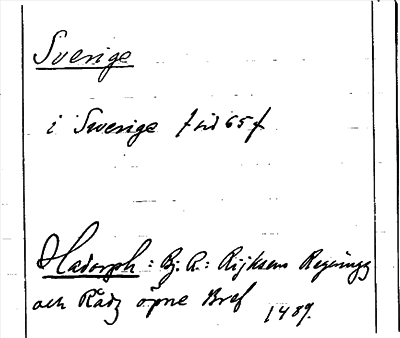 Sverige
i Swerige f sid 65 f
Hadorph: Bj. R.: Rijksens Regeringz
och Rådz öpne Bref 1489.